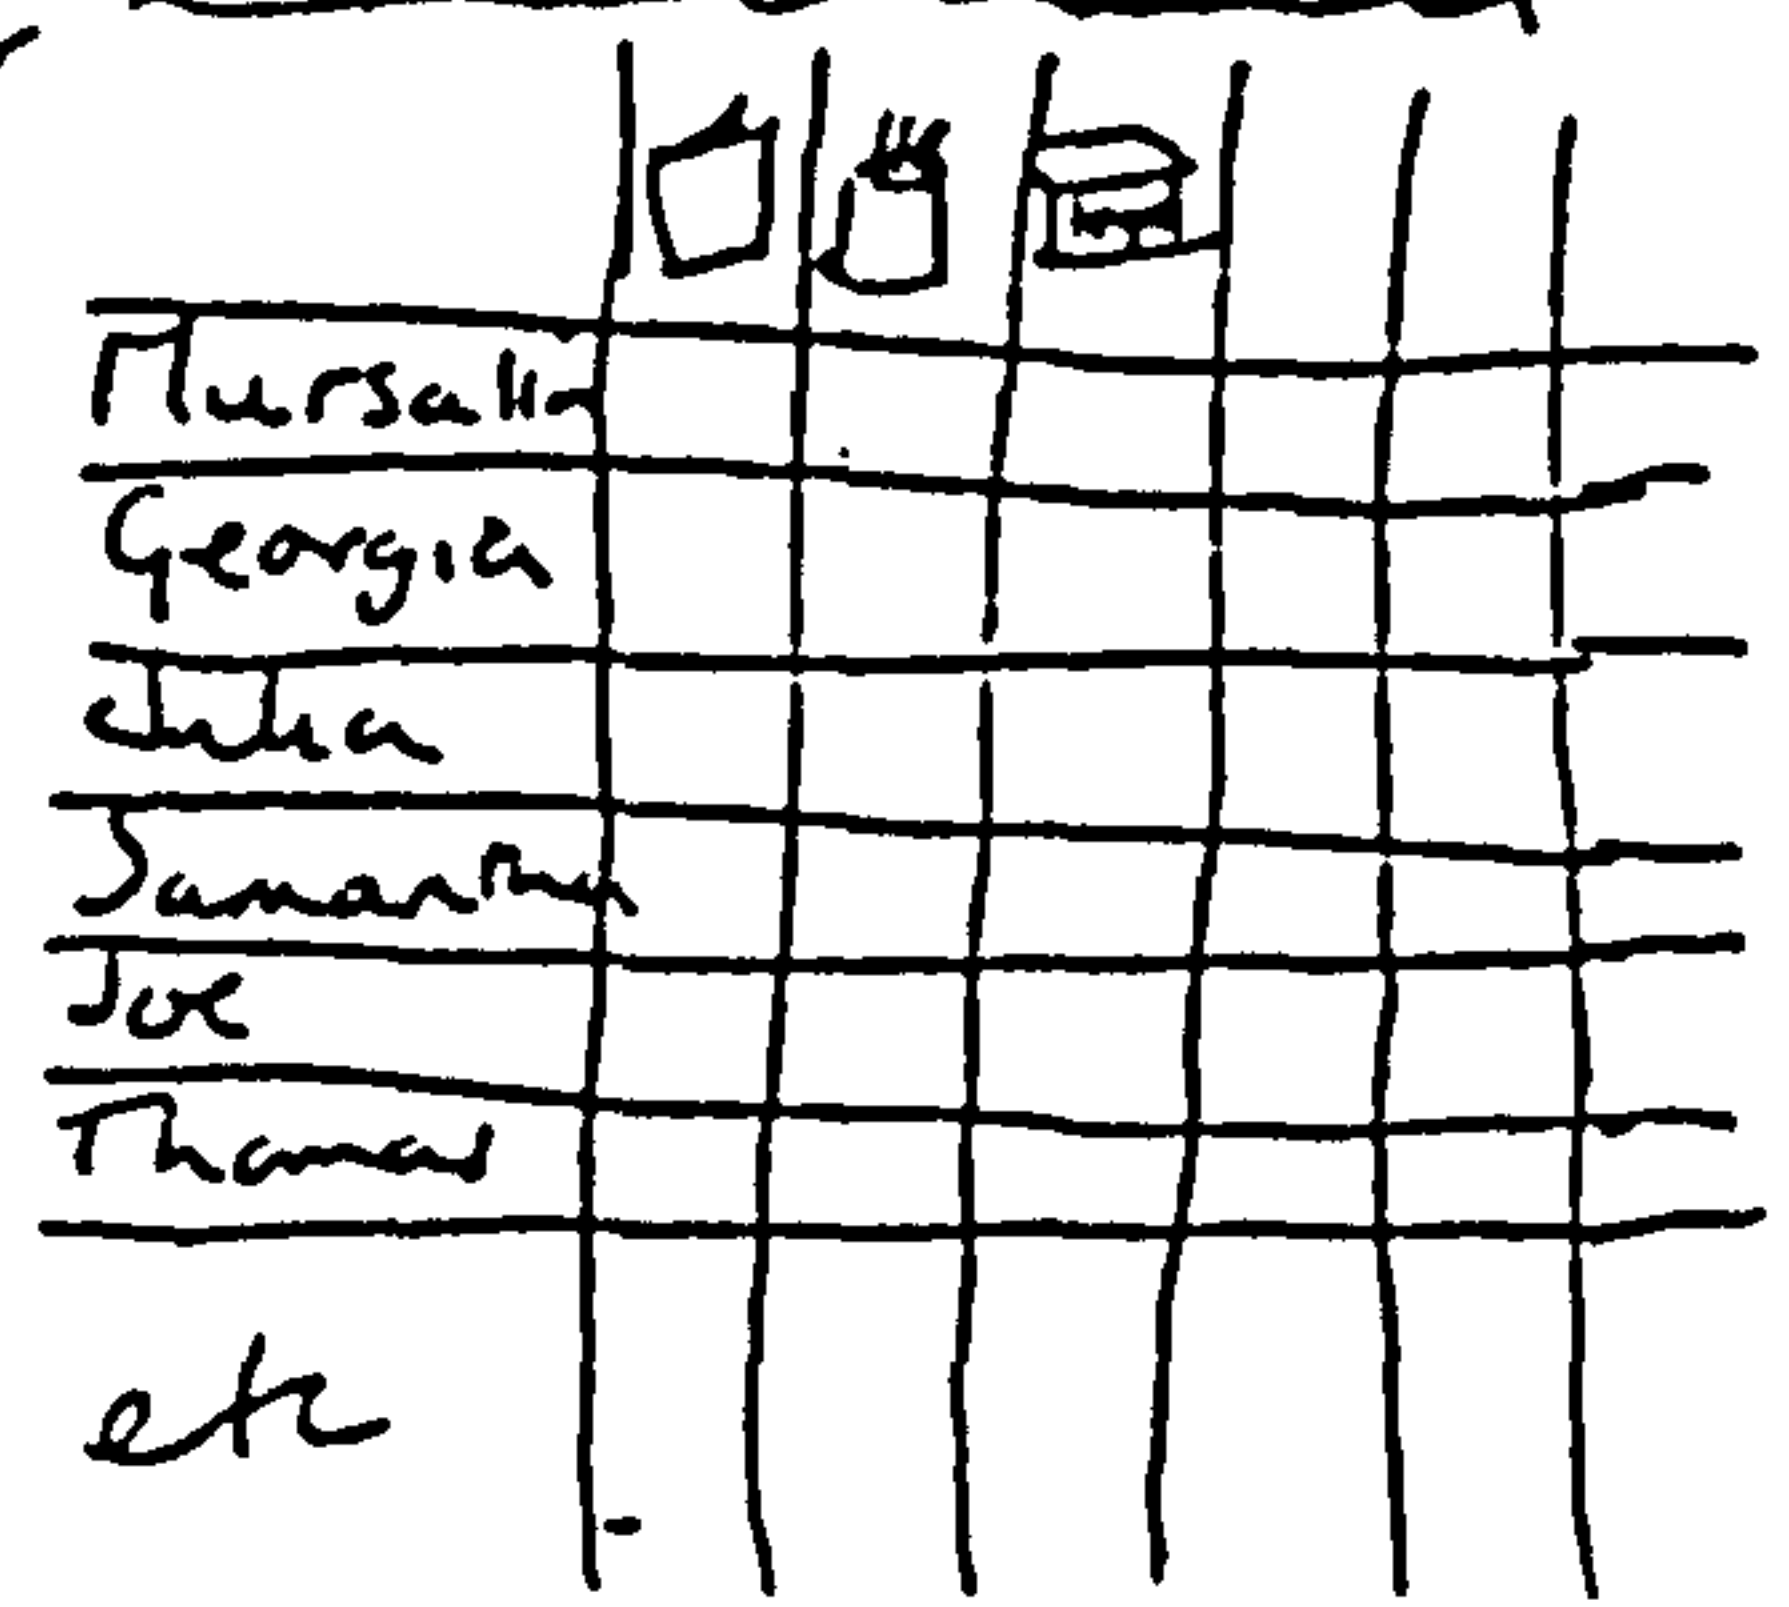 Mursalin
Georgia
Julia
Samantha
Joe
Thomas
etc